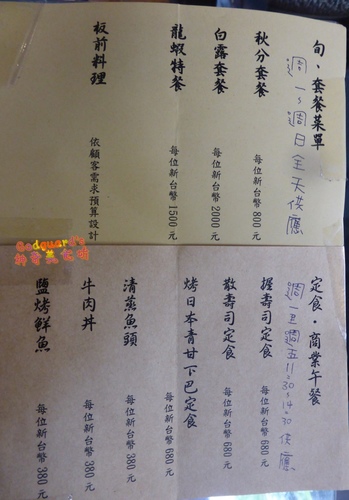 旬、套餐菜單
週一~週日全天供應
秋分套餐 每位新台幣 800 元
白露套餐 每位新台幣 2000 元
龍蝦特餐 每位新台幣 1500 元
板前料理 依顧客需求預算設計
定食・商業午餐
週一至週五11:30~14:30供應
握壽司定食 每位新台幣 680 元
散壽司定食 每位新台幣 680 元
烤日本青甘下巴定食 每位新台幣 680 元
清蒸魚頭 每位新台幣 380 元
牛肉丼 每位新台幣 380 元
鹽烤鮮魚 每位新台幣 380 元